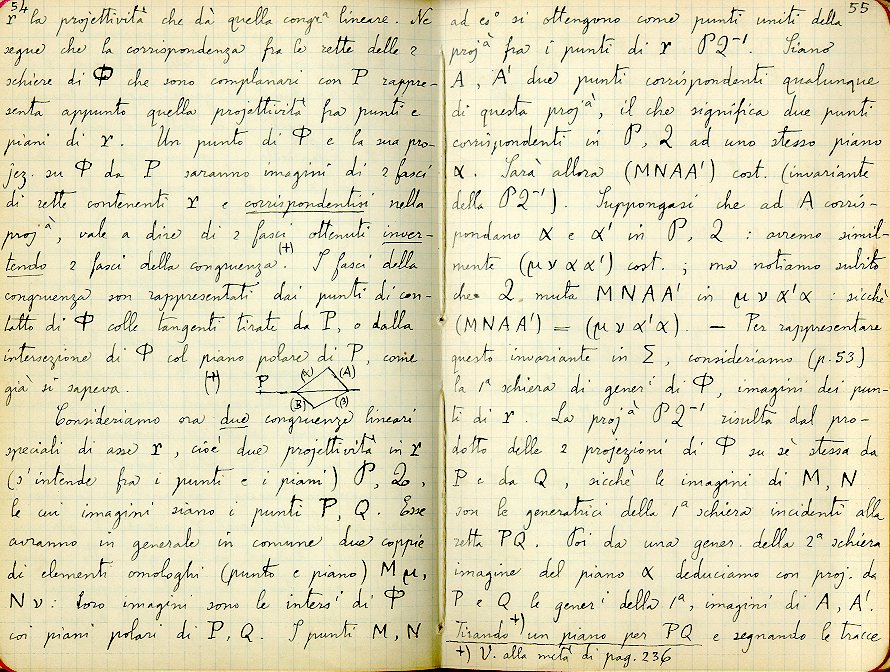 54
r la projettività che dà quella congrᵃ lineare. Ne
segue che la corrispondenza fra le rette delle 2
schiere di Φ che sono complanari con P rappre-
senta appunto quella projettività fra punti e
piani di r. Un punto di Φ e la sua pro-
jez. su Φ da P saranno imagini di 2 fasci
di rette contenenti r e corrispondentisi nella
projᵃ, vale a dire di 2 fasci ottenuti inver-
tendo 2 fasci della congruenza. (+) I fasci della
congruenza son rappresentati dai punti di con-
tatto di Φ colle tangenti tirate da P, o dalla
intersezione di Φ col piano polare di P, come
già si sapeva. (+) P (α) (A) (B) (β)
Consideriamo ora due congruenze lineari
speciali di asse r, cioè due projettività in r
(s'intende fra i punti e i piani) P, Q,
le cui imagini siano i punti P, Q. Esse
avranno in generale in comune due coppie
di elementi omologhi (punto e piano) M μ,
N ν: loro imagini sono le intersⁱ di Φ
coi piani polari di P, Q. I punti M, N
55
ad esº si ottengono come punti uniti della
projᵃ fra i punti di r PQ⁻¹. Siano
A, A' due punti corrispondenti qualunque
di questa projᵃ, il che significa due punti
corrispondenti in P, Q ad uno stesso piano
α. Sarà allora (MNAA') cost. (invariante
della PQ⁻¹). Suppongasi che ad A corris-
pondano α e α' in P, Q: avremo simil-
mente (μ ν α α') cost.; ma notiamo subito
che Q muta MNAA' in μ ν α' α: sicchè
(MNAA') = (μ ν α' α). — Per rappresentare
questo invariante in Σ, consideriamo (p. 53)
la 1ᵃ schiera di generⁱ di Φ, imagini dei pun-
ti di r. La projᵃ PQ⁻¹ risulta dal pro-
dotto delle 2 projezioni di Φ su sè stessa da
P e da Q, sicchè le imagini di M, N
son le generatrici della 1ᵃ schiera incidenti alla
retta PQ. Poi da una gener. della 2ᵃ schiera
imagine del piano α deduciamo con proj. da
P e Q le generⁱ della 1ᵃ, imagini di A, A'.
Tirando +) un piano per PQ e segnando le tracce
+) V. alla metà di pag. 236